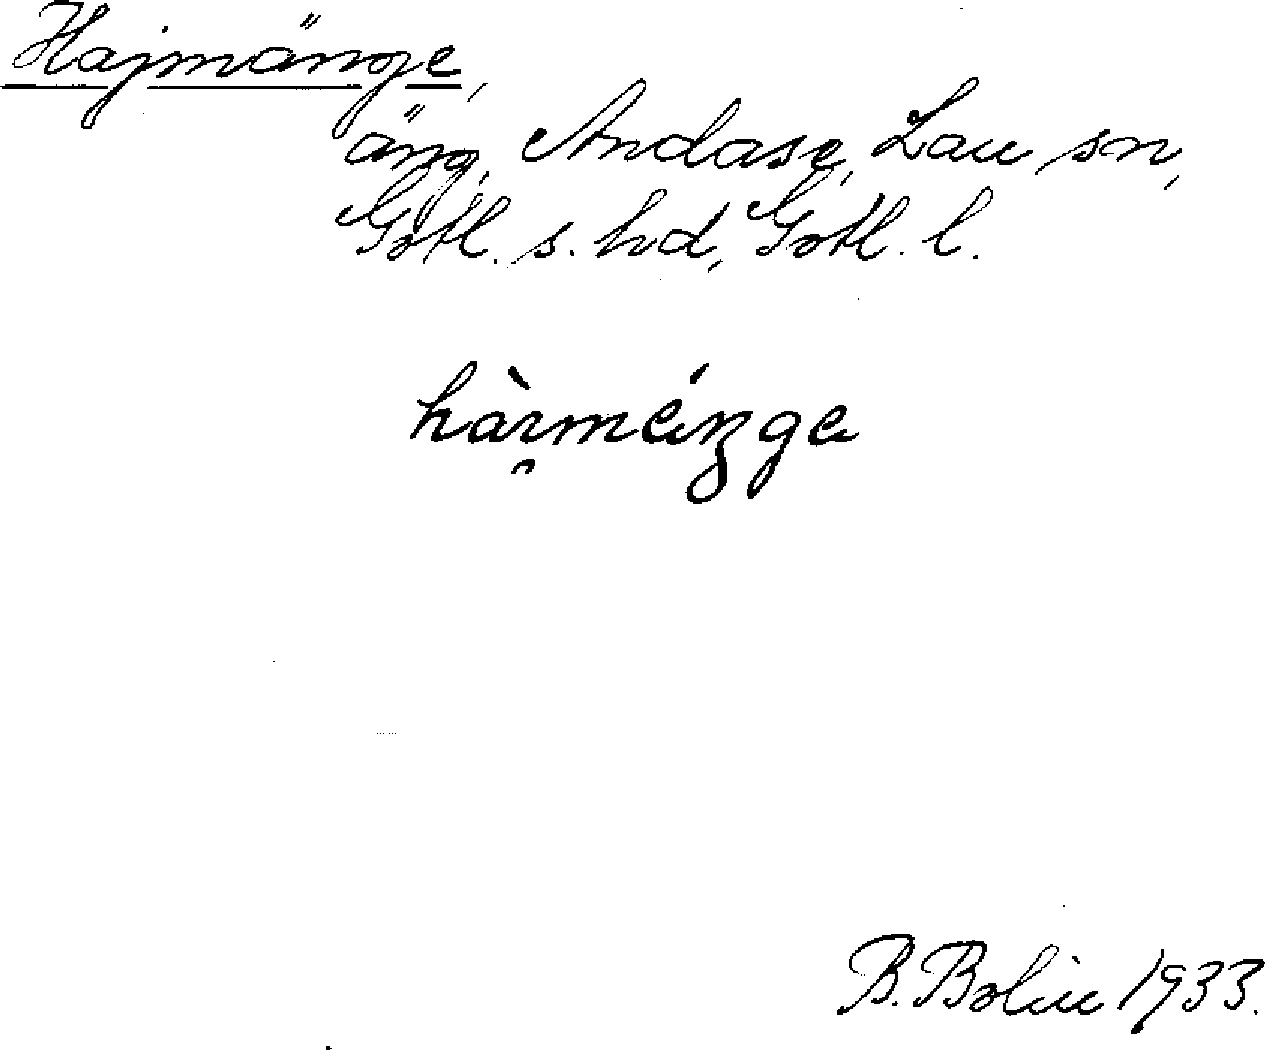 Hajmänge,
äng, Andase, Lau sn,
Gotl. s. hd, Gotl. l.
hàı̯méŋge
B. Bolin 1933.